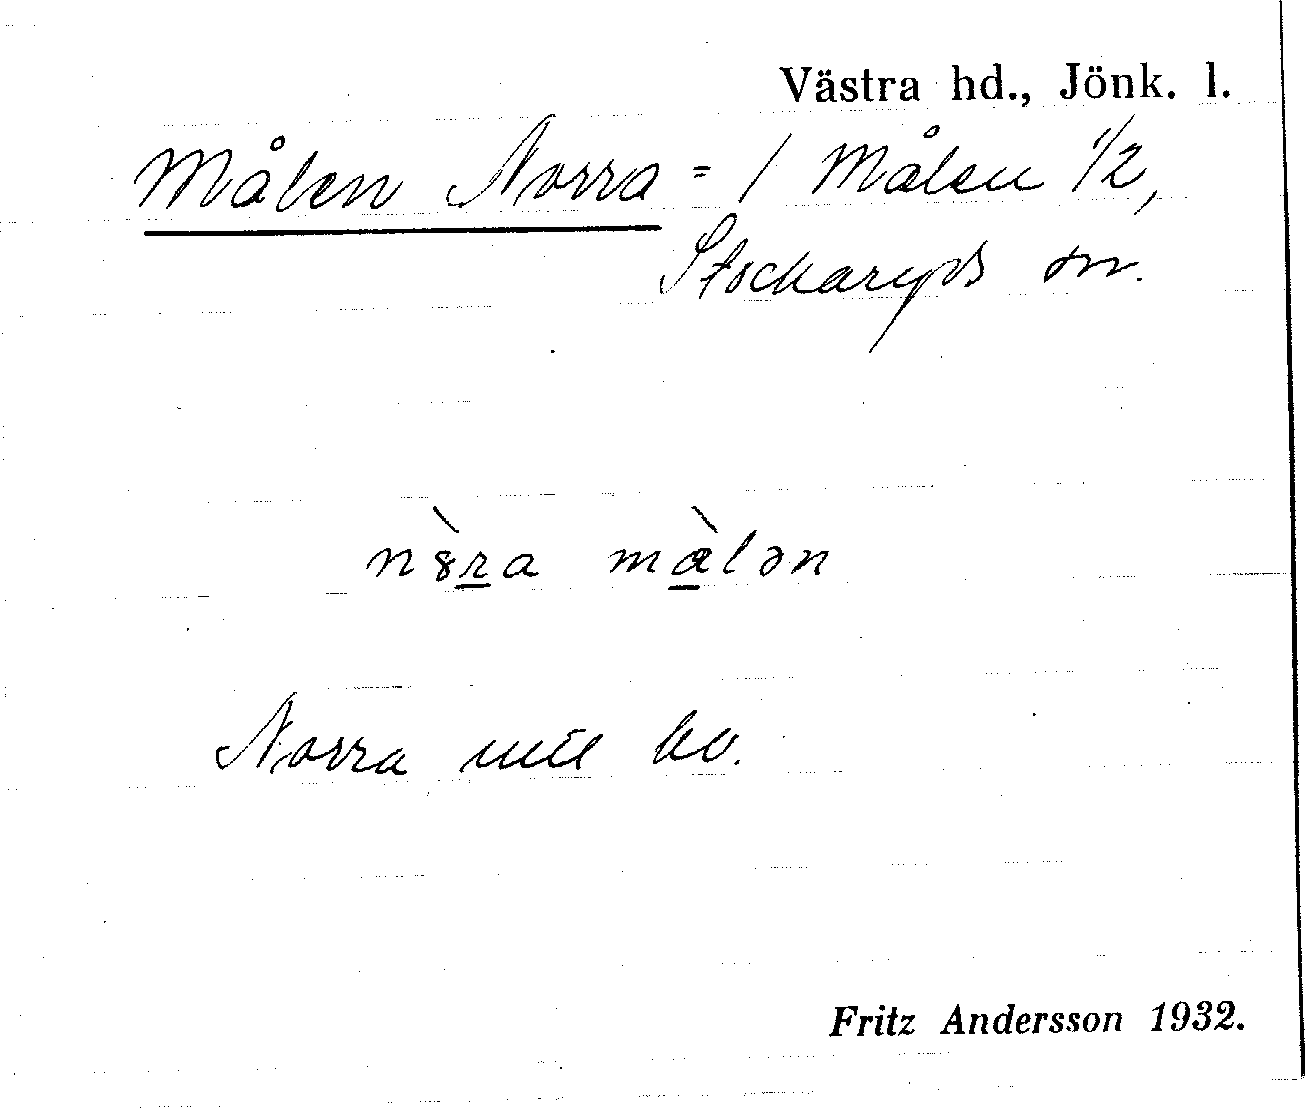 Västra hd., Jönk. l.
Målen Norra = / Målen 1/2,
Stockaryds sn.
nòra màlən
Norra
Fritz Andersson 1932.